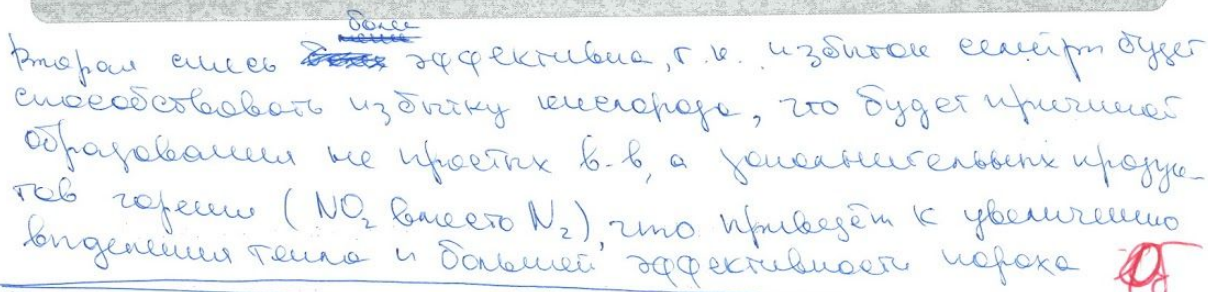 более
Вторая смесь эффективна, т.к. избыток селитры будет
способствовать избытку кислорода, что будет причиной
образования не простых в-в, а дополнительных продук-
тов горения (NO₂ вместо N₂), что приведёт к увеличению
выделения тепла и большей эффективности пороха